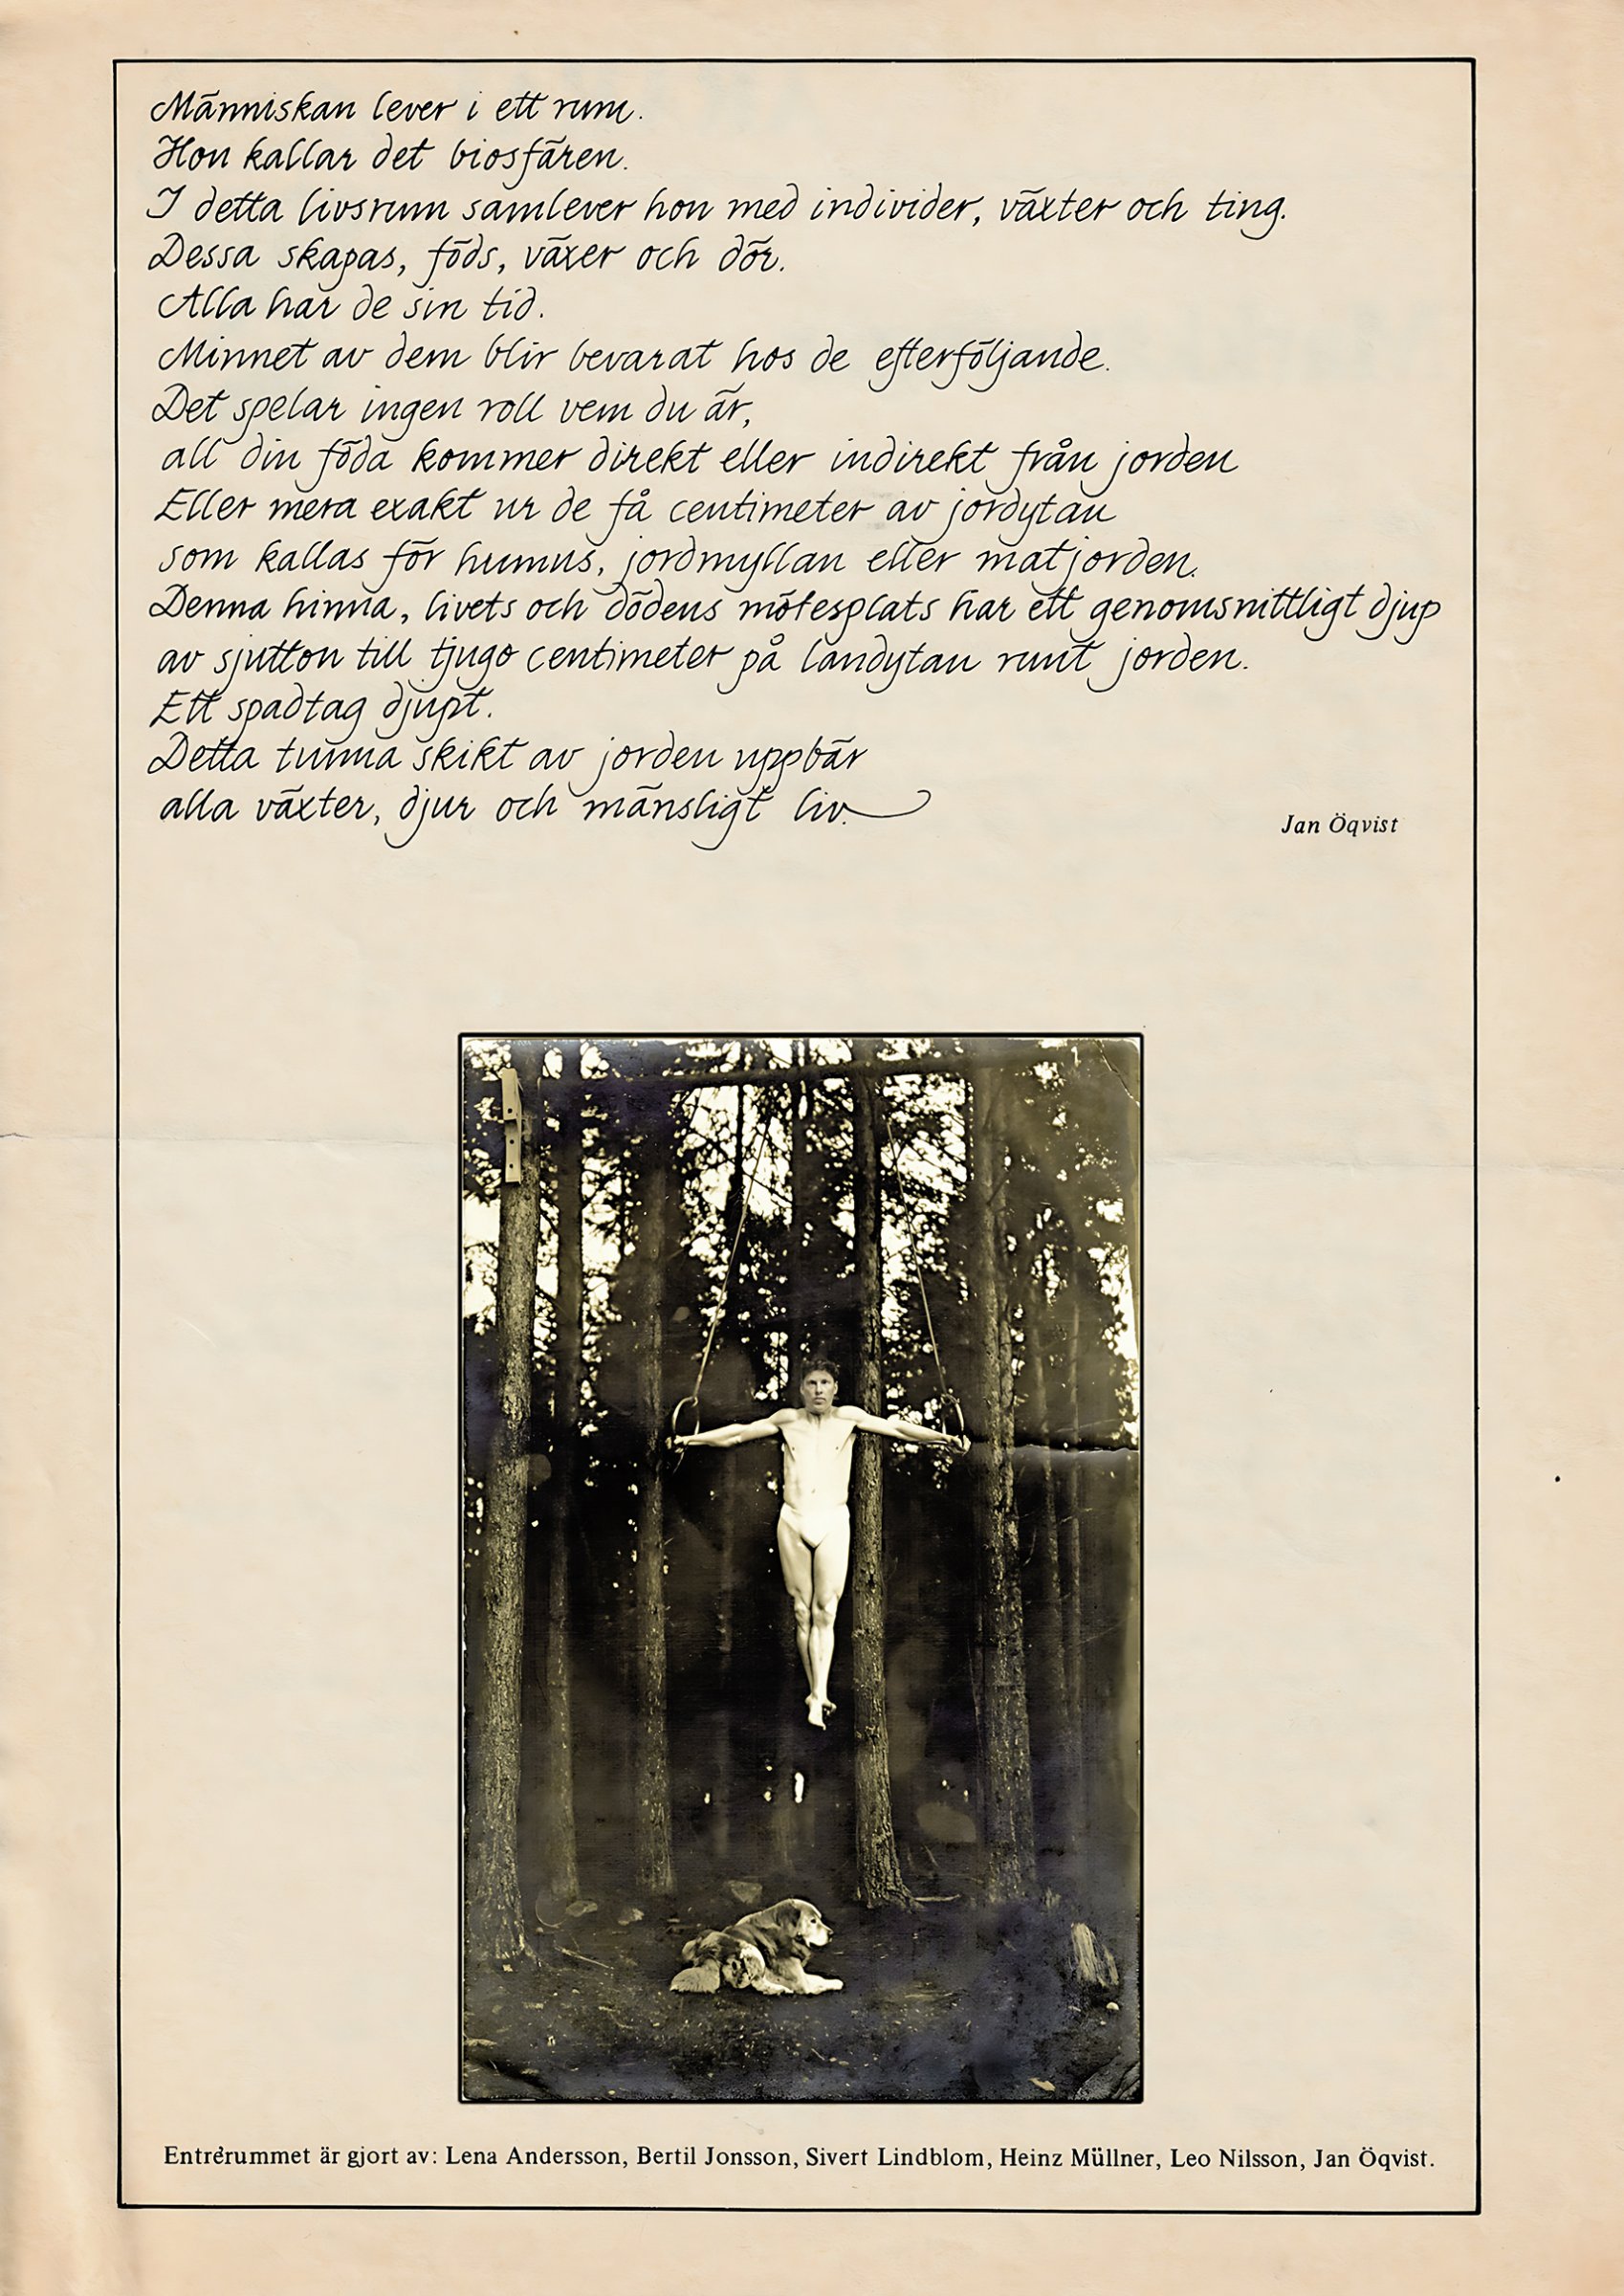 Människan lever i ett rum.
Hon kallar det biosfären.
I detta livsrum samlever hon med individer, växter och ting.
Dessa skapas, föds, växer och dör.
Alla har de sin tid.
Minnet av dem blir bevarat hos de efterföljande.
Det spelar ingen roll vem du är,
all din föda kommer direkt eller indirekt från jorden
Eller mera exakt ur de få centimeter av jordytan
som kallas för humus, jordmyllan eller matjorden.
Denna hinna, livets och dödens mötesplats har ett genomsnittligt djup
av sjutton till tjugo centimeter på landytan runt jorden.
Ett spadtag djupt.
Detta tunna skikt av jorden uppbär
alla växter, djur och mänsligt liv.
Jan Öqvist
Entrérummet är gjort av: Lena Andersson, Bertil Jonsson, Sivert Lindblom, Heinz Müllner, Leo Nilsson, Jan Öqvist.